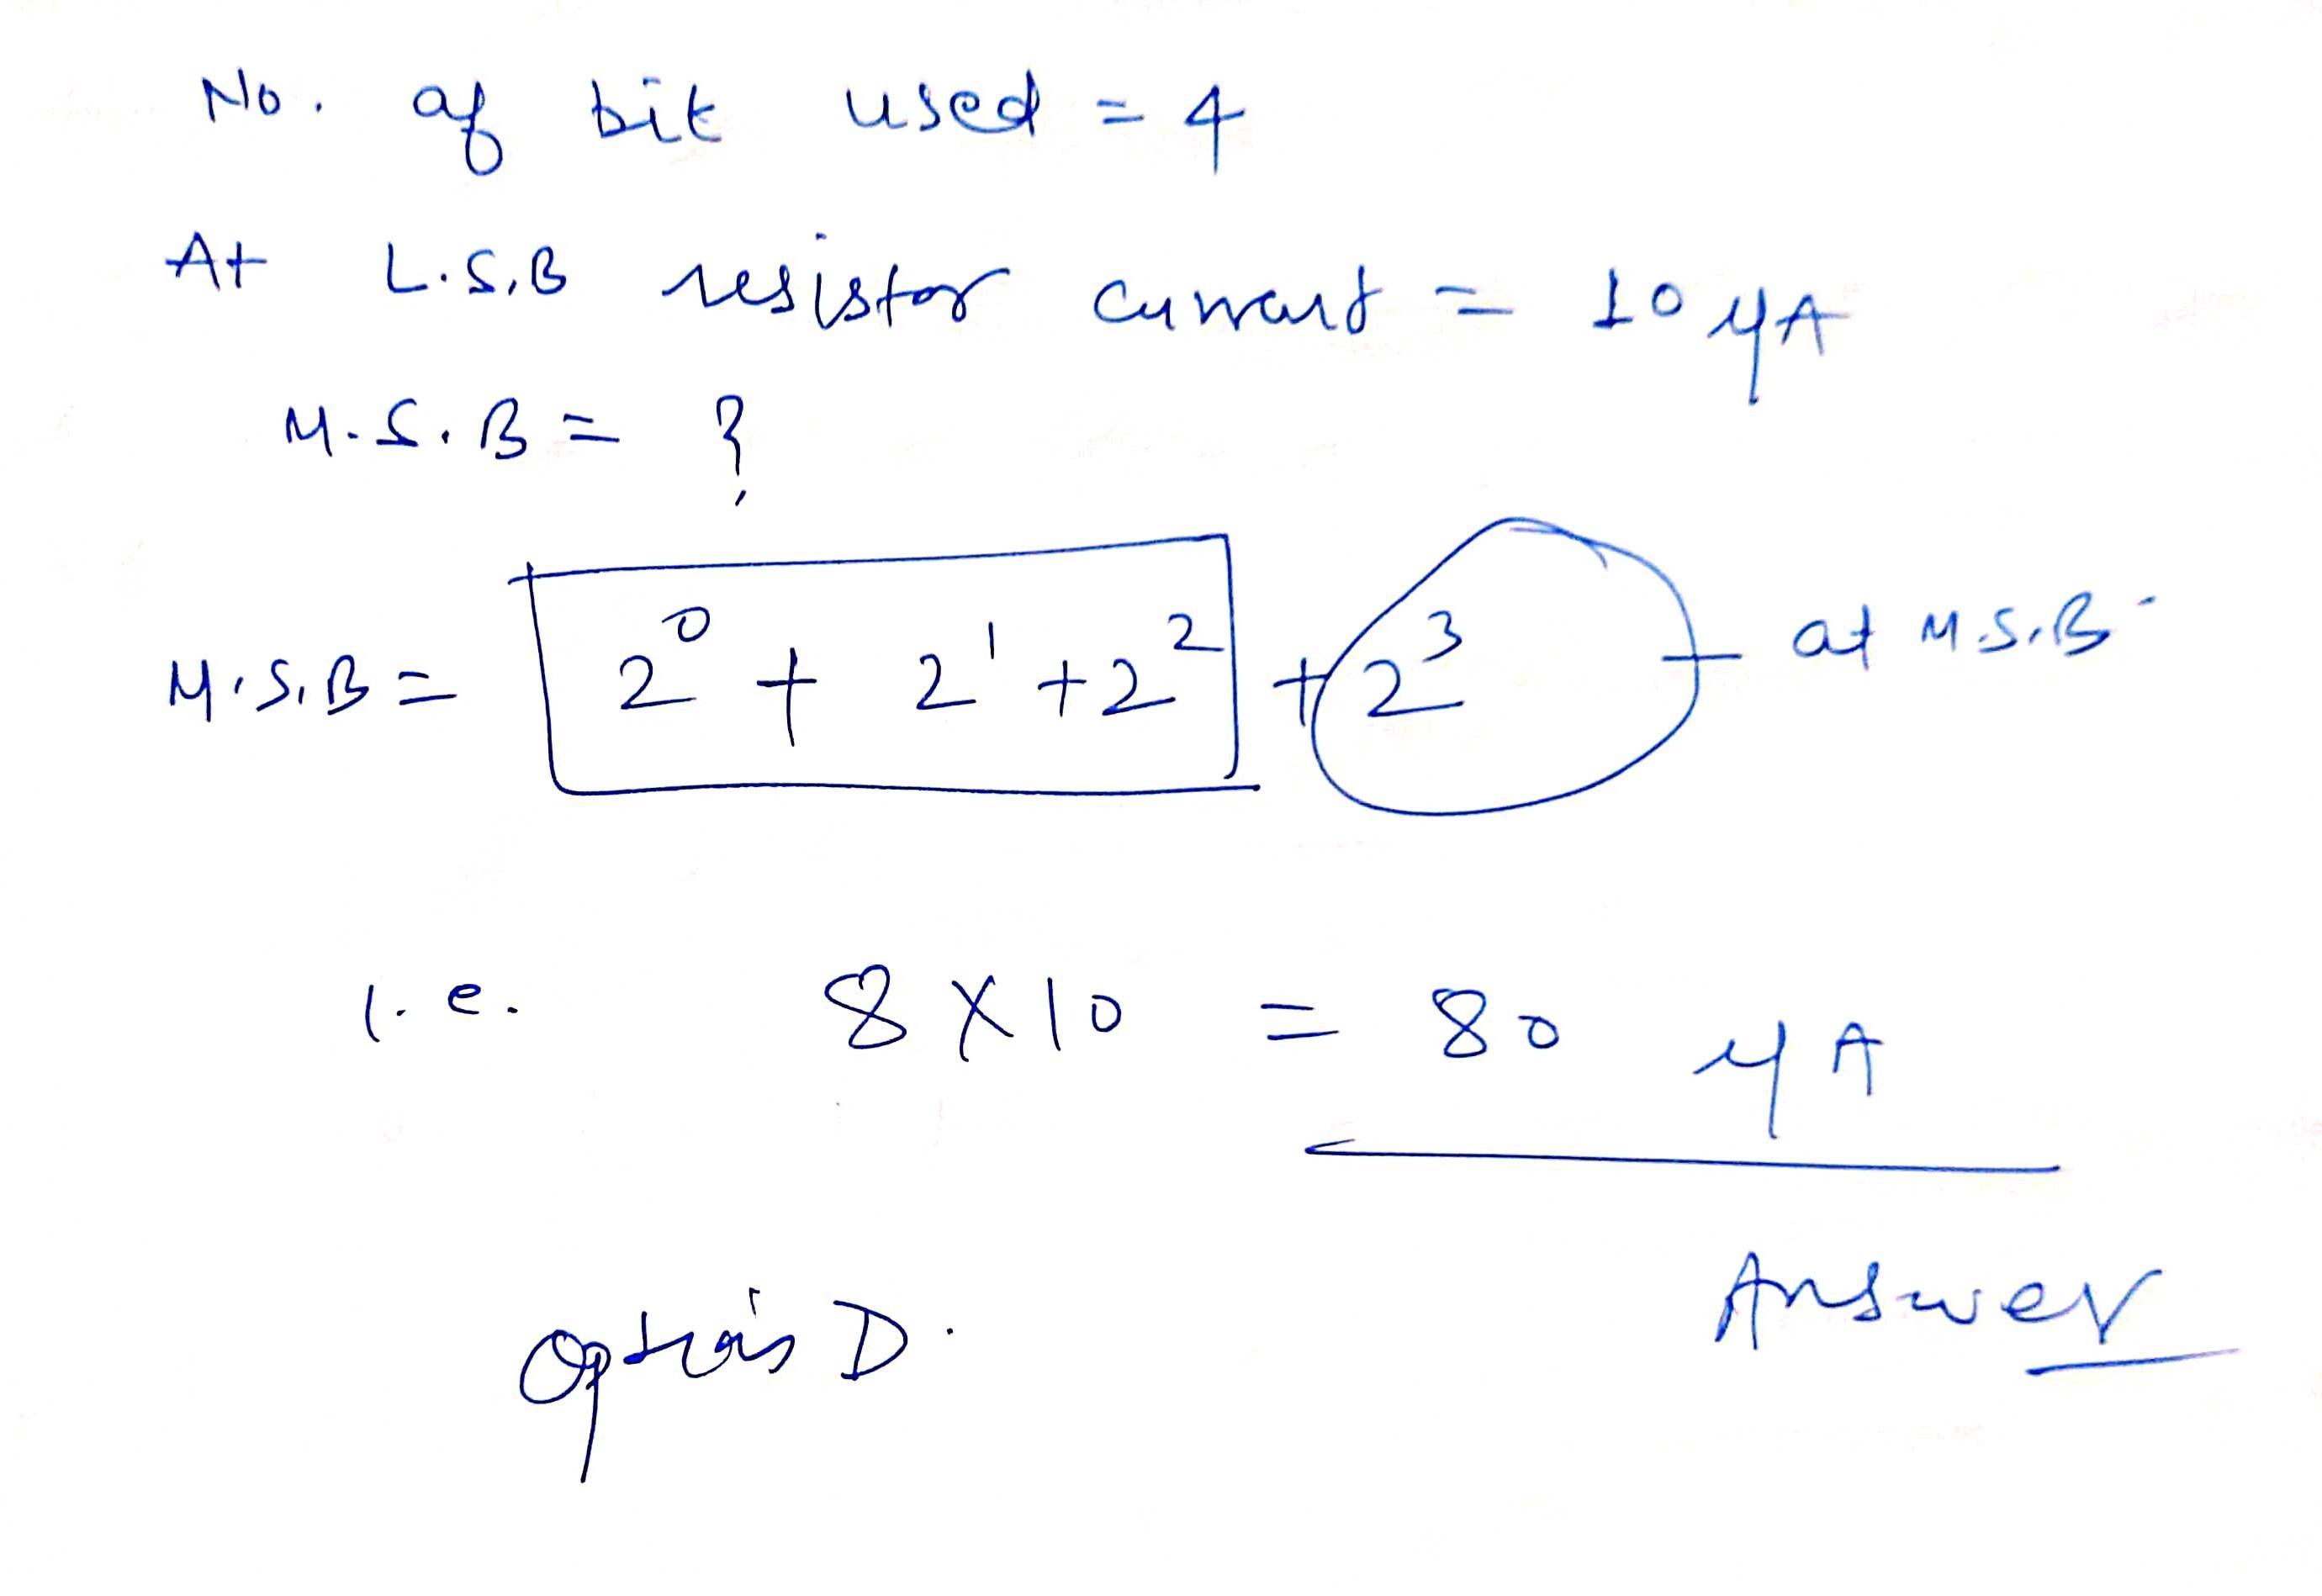 No. of bit used = 4
At L.S.B resistor current = 10 μA
M.S.B = ?
M.S.B = 2⁰ + 2¹ + 2² + 2³ at M.S.B
i.e. 8 X 10 = 80 μA
Answer
Option D.